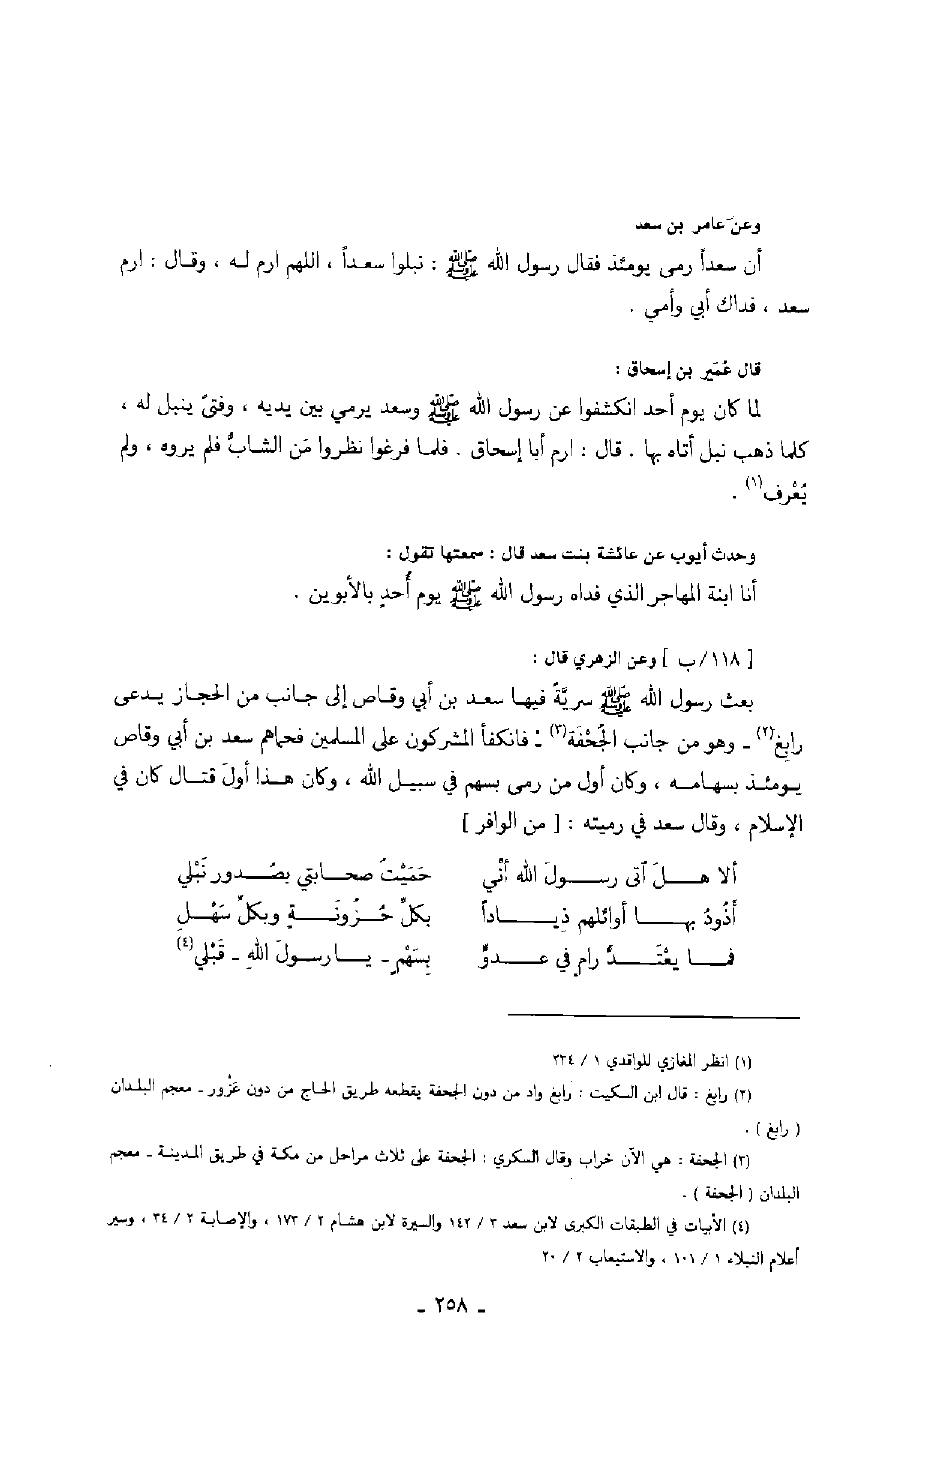 وعن عامر بن سعد
أن سعداً رمى يومئذ فقال رسول الله ﷺ : نبلوا سعداً ، اللهم ارم له ، وقال : ارم
سعد ، فداك أبي وأمي .
قال عُمَير بن إسحاق :
لما كان يوم أحد انكشفوا عن رسول الله ﷺ وسعد يرمي بين يديه ، وفتىً ينبل له ،
كلما ذهب نبل أتاه بها . قال : ارم أبا إسحاق . فلما فرغوا نظروا مَن الشابُّ فلم يروه ، ولم
يُعْرف(١) .
وحدث أيوب عن عائشة بنت سعد قال : سمعتها تقول :
أنا ابنة المهاجر الذي فداه رسول الله ﷺ يوم أُحدٍ بالأبوين .
[ ١١٨/ب ] وعن الزهري قال :
بعث رسول الله ﷺ سريَّةً فيها سعد بن أبي وقاص إلى جانب من الحجاز يدعى
رابغ(٢) ـ وهو من جانب الجُحْفَة(٣) : فانكفأ المشركون على المسلمين فحماهم سعد بن أبي وقاص
يومئذ بسهامه ، وكان أول من رمى بسهم في سبيل الله ، وكان هذا أولَ قتال كان في
الإسلام ، وقال سعد في رميته : [ من الوافر ]
ألا هلَ آتى رسولَ الله أنّي حَمَيْتُ صحابتي بصُدور نَبْلي
أذُودُ بها أوائلهم ذياداً بكلِّ حُزُونَةٍ وبكلِّ سَهْلِ
فما يعْتَدُّ رامٍ في عدوٍّ بسَهْمٍ ـ يا رسولَ اللهِ ـ قَبْلي(٤)
(١) انظر المغازي للواقدي ١ / ٢٣٤
(٢) رابغ : قال ابن السكيت : رابغ واد من دون الجحفة يقطعه طريق الحاج من دون عَزْور ـ معجم البلدان
( رابغ ) .
(٣) الجحفة : هي الآن خراب وقال السكري : الجحفة على ثلاث مراحل من مكة في طريق المدينة ـ معجم
البلدان ( الجحفة ) .
(٤) الأبيات في الطبقات الكبرى لابن سعد ٣ / ١٤٢ والسيرة لابن هشام ٢ / ١٧٣ ، والإصابة ٢ / ٣٤ ، وسير
أعلام النبلاء ١ / ١٠١ ، والاستيعاب ٢ / ٢٠
ـ ٢٥٨ ـ